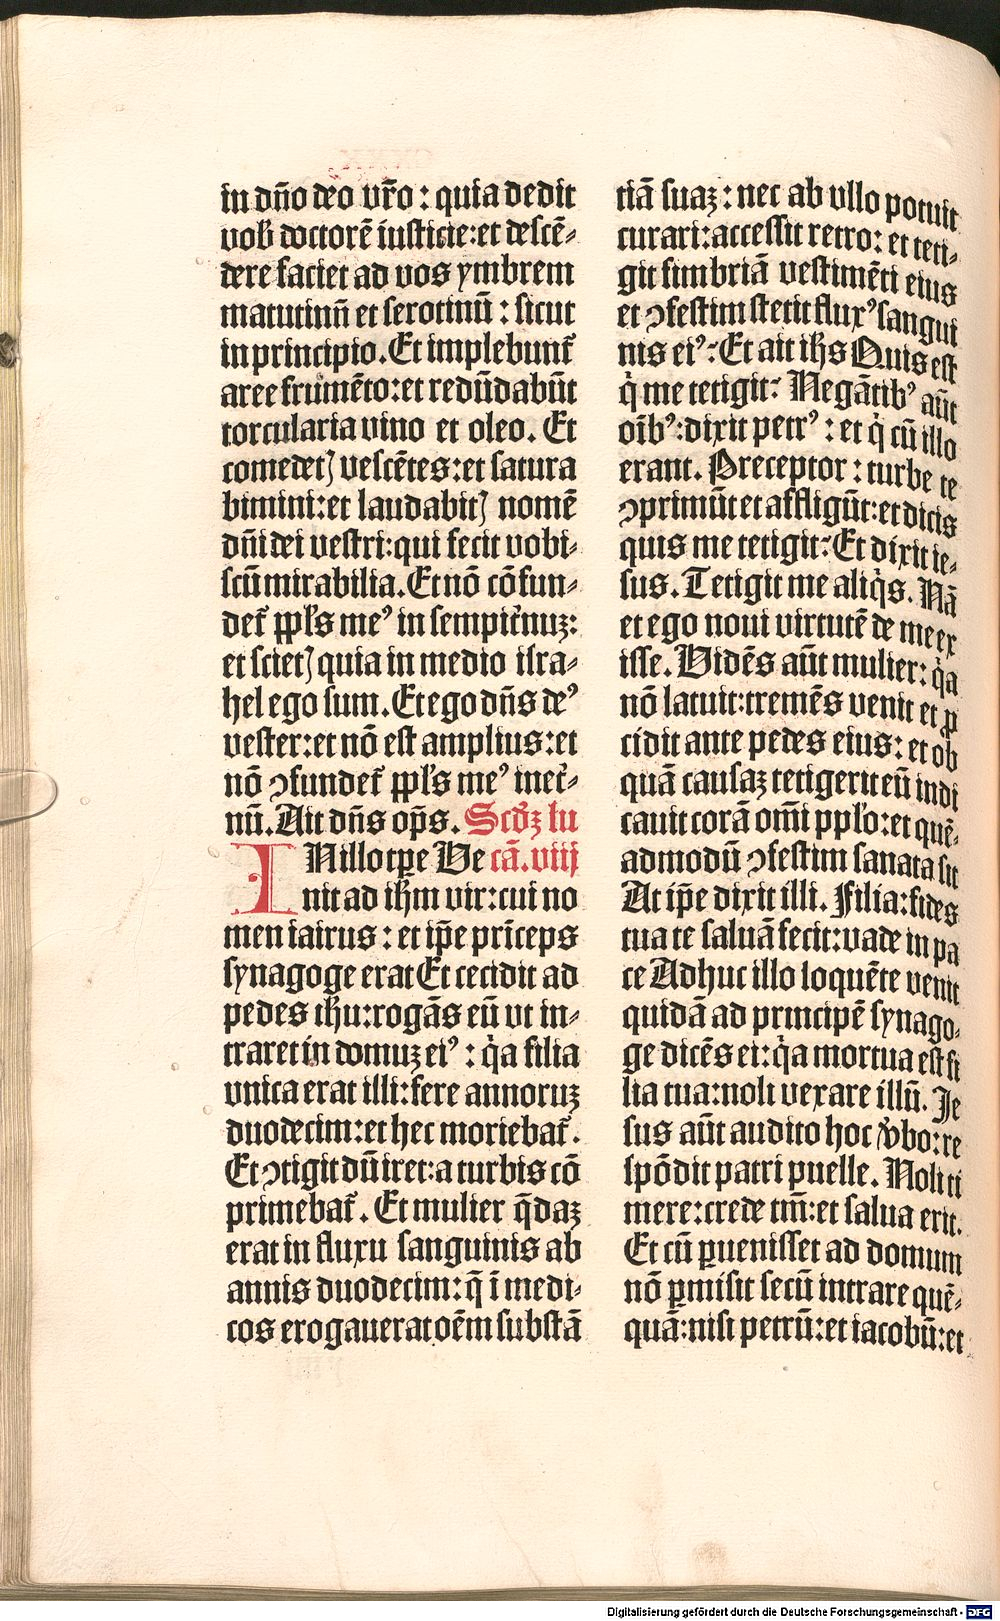 in dño deo vr̃o : quia dedit
vob̃ doctorẽ iusticie:et descẽ-
dere faciet ad vos ymbrem
matutinũ et serotinũ : sicut
in principio. Et implebunt̃
aree frumẽto:et redũdabũt
torcularia vino et oleo. Et
comedetꝭ vescẽtes:et satura
bimini:et laudabitꝭ nomẽ
dñi dei vestri:qui fecit vobi-
scũ mirabilia. Et nõ cõfun-
det̃ ppl̃s meꝰ in sempit̃nuꝫ:
et scietꝭ quia in medio isra-
hel ego sum. Et ego dñs deꝰ
vester:et nõ est amplius:et
nõ ꝯfundet̃ ppl̃s meꝰ inet̃-
nũ. Ait dñs op̃s. Scd̃ꝫ lu
IN illo tꝑe Ve cã. viij
nit ad ih̃m vir:cui no
men iairus : et ip̃e prĩceps
synagoge erat Et cecidit ad
pedes ih̃u:rogãs eũ vt in-
traret in domuꝫ eiꝰ : q̇a filia
vnica erat illi:fere annoruꝫ
duodecim:et hec moriebat̃.
Et ꝯtigit dũ iret:a turbis cõ
primebat̃. Et mulier q̃daꝫ
erat in fluxu sanguinis ab
annis duodecim:q̃ ĩ medi-
cos erogauerat oẽm substã
tiã suaꝫ : nec ab vllo potuit
curari:accessit retro: et teti-
git fimbriã vestimẽti eius
et ꝯfestim stetit fluxꝰ sangui
nis eiꝰ: Et ait ih̃s Quis est
q̇ me tetigit: Negãtibꝰ aũt
oĩbꝰ:dixit petrꝰ : et q̇ cũ illo
erant. Preceptor : turbe te
ꝯprimũt et affligũt:et dicis
quis me tetigit: Et dixit ie-
sus. Tetigit me aliq̇s. Nã
et ego noui virtutẽ de me ex
isse. Vidẽs aũt mulier: q̇a
nõ latuit:tremẽs venit et ꝓ
cidit ante pedes eius: et ob
quã causaꝫ tetigerit eũ indi
cauit corã om̃i ppl̃o:et quẽ-
admodũ ꝯfestim sanata sit
At ip̃e dixit illi. Filia: fides
tua te saluã fecit:vade in pa
ce Adhuc illo loquẽte venit
quidã ad principẽ synago-
ge dicẽs ei: q̇a mortua est fi
lia tua:noli vexare illũ. Je
sus aũt audito hoc v̾bo: re
spõdit patri puelle. Noli ti
mere:crede tm̃:et salua erit.
Et cũ ꝑuenisset ad domum
nõ ꝑmisit secũ intrare quẽ-
quã:nisi petrũ:et iacobũ:et
Digitalisierung gefördert durch die Deutsche Forschungsgemeinschaft - DFG